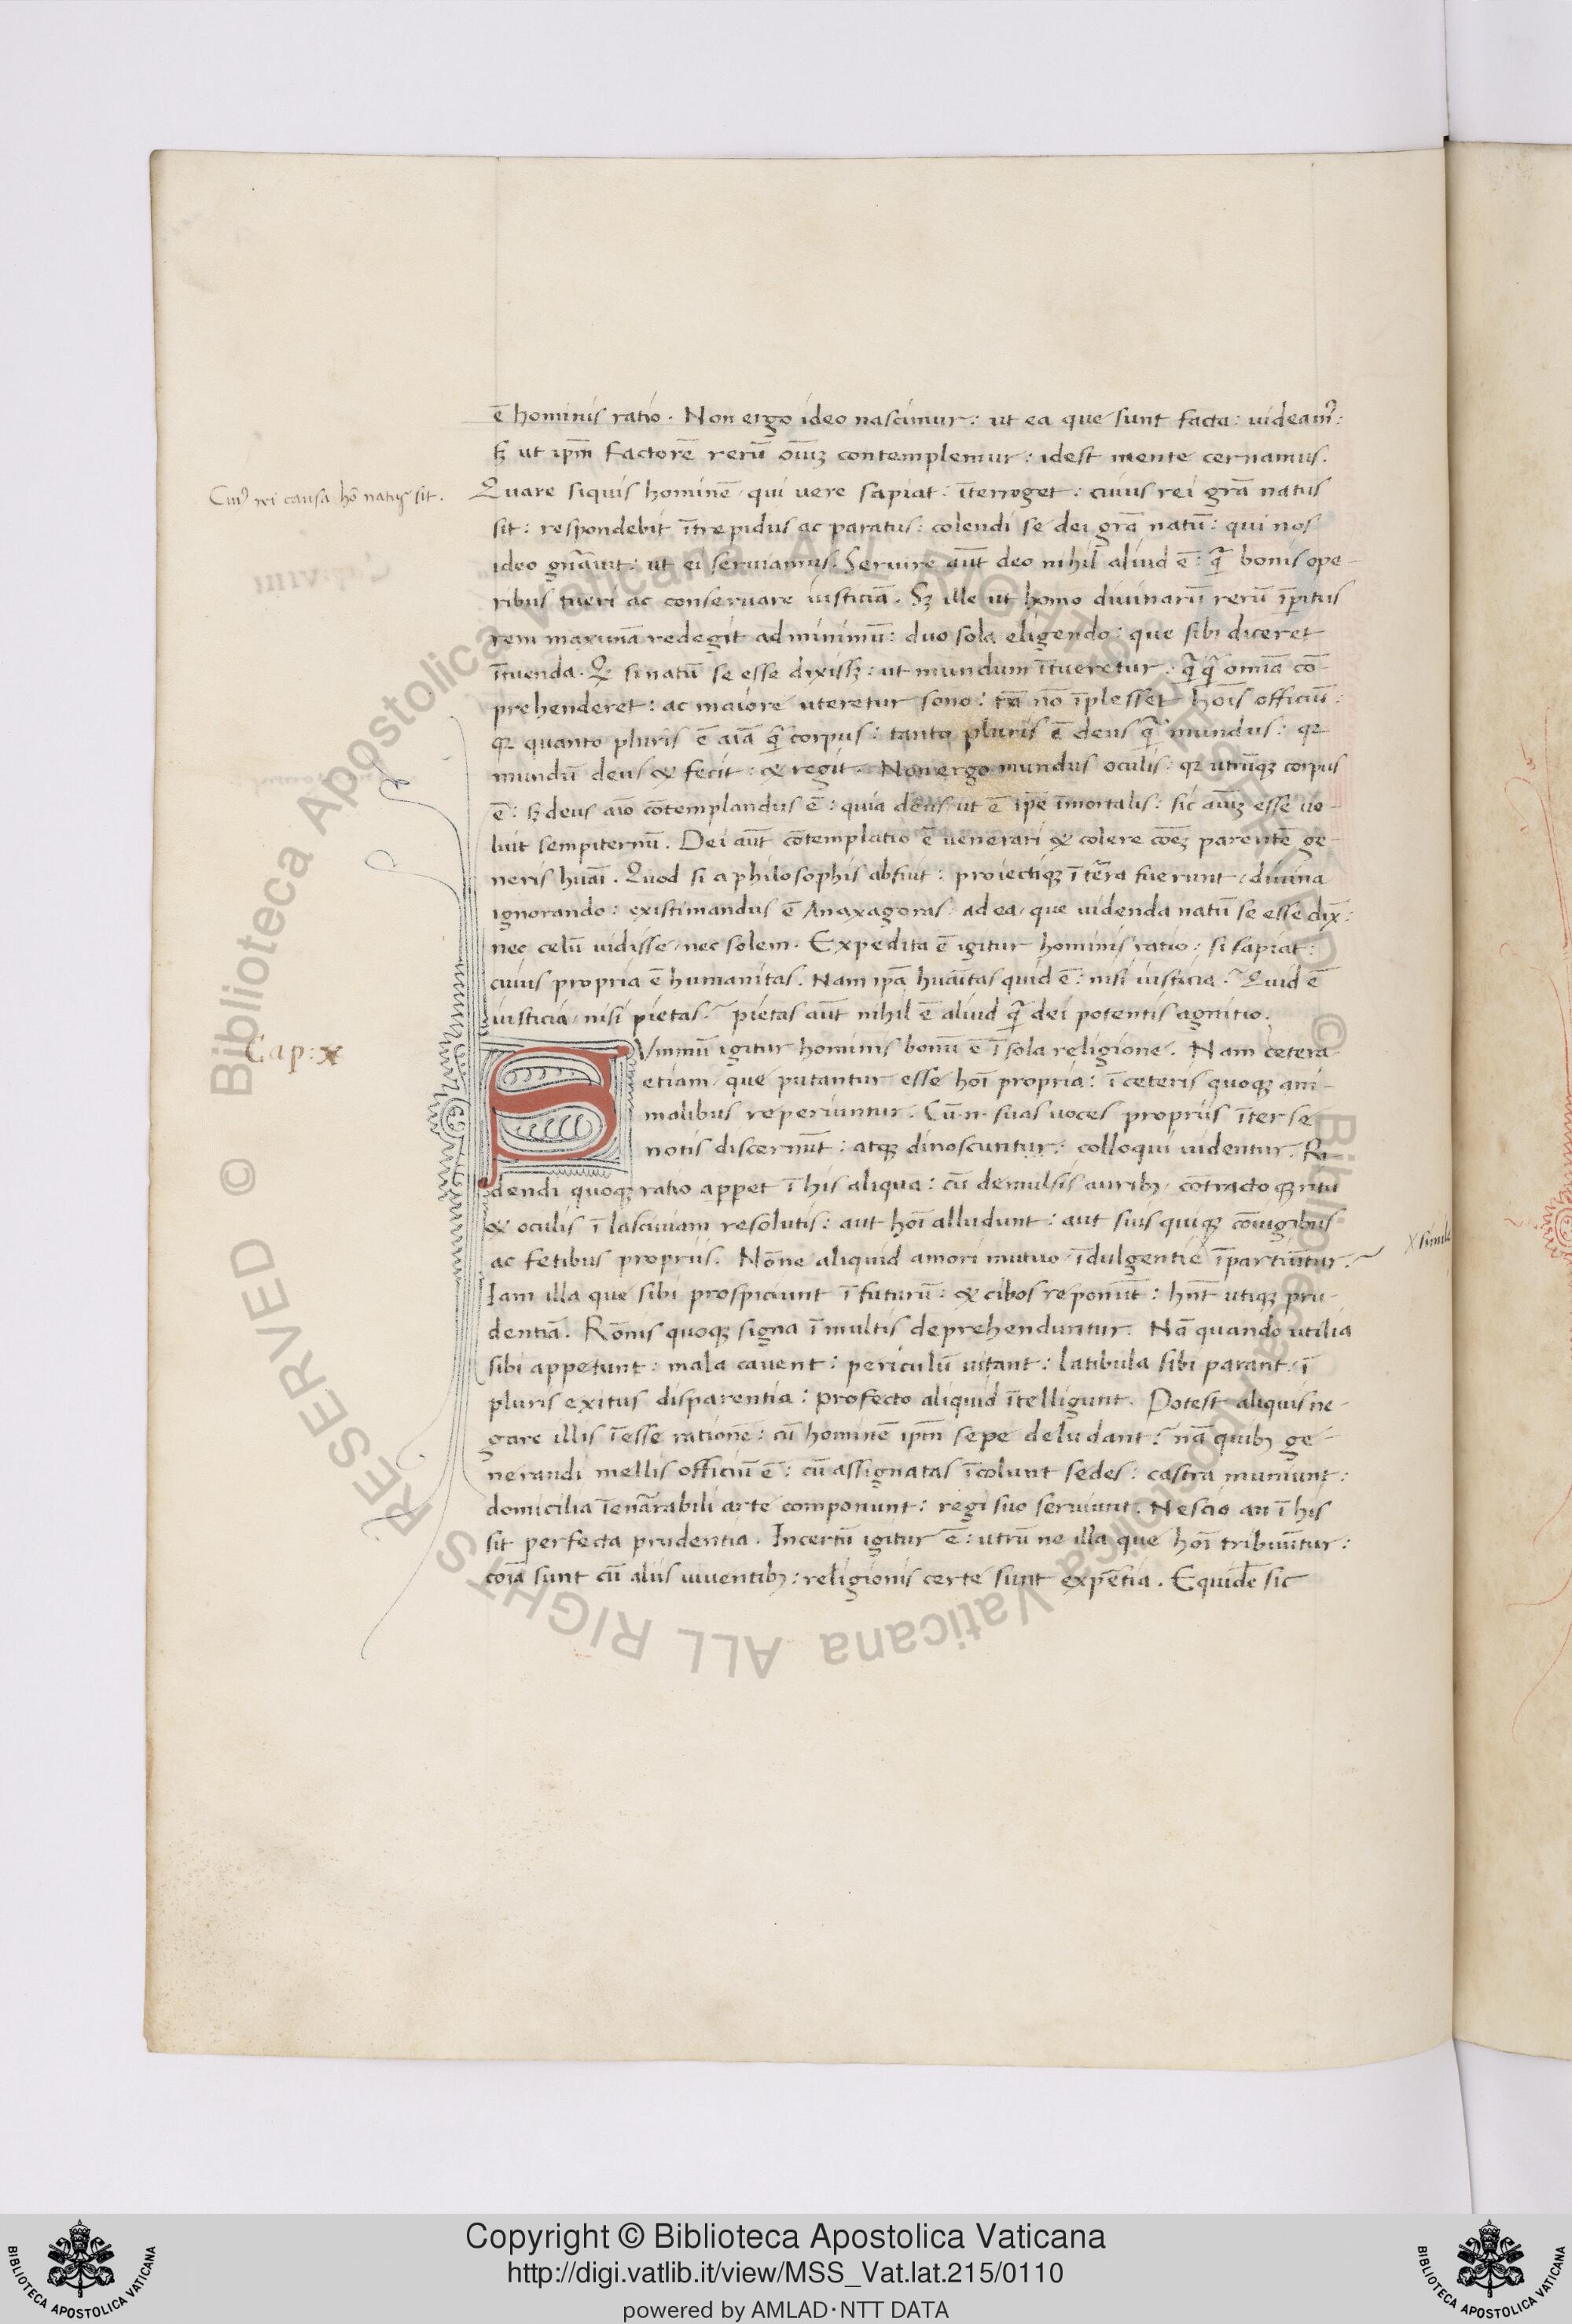 ē hominis ratio. Non ergo ideo nascimur: ut ea que sunt facta: uideam᷒:
sꝫ ut ip̄m factorē rerū oīuꝫ contemplemur: idest mente cernamus.
Cui᷒ rei causa hō natus sit.
Quare siquis hominē qui uere sapiat: īterroget: cuius rei grā natus
sit: respondebit ītrepidus ac paratus: colendi se dei grā natū: qui nos
ideo gn̄auit: ut ei seruiamus. Seruire aūt deo nihil aliud ē: q̄ bonis ope-
ribus tueri ac conseruare iusticiā. Sꝫ ille ut homo diuinarū rerū īperitus
rem maximā redegit ad minimū: duo sola eligendo: que sibi diceret
ītuenda. Qꝫ si natū se esse dixissꝫ: ut mundum ītueretur: q̄q̄ omīa cō-
prehenderet: ac maiore uteretur sono: tn̄ nō īplesset hoīs officiū:
qꝛ quanto pluris ē aīa q̄ corpus: tanto pluris ē deus q̄ mundus: qꝛ
mundū deus & fecit: & regit. Non ergo mundus oculis: qꝛ utrūqꝫ corpus
ē: sꝫ deus aīo cōtemplandus ē: quia deus ut ē ip̄e īmortalis: sic aīuꝫ esse uo-
luit sempiternū. Dei aūt cōtemplatio ē uenerari & colere cōēꝫ parentē ge-
neris huāi. Quod si a philosophis abfuit: proiectiqꝫ ī terra fuerunt, diuina
ignorando: existimandus ē Anaxagoras ad ea, que uidenda natū se esse dix̄:
nec celū uidisse, nec solem. Expedita ē igitur hominis ratio, si sapiat:
cuius propria ē humanitas. Nam ip̄a huāitas quid ē: nisi iusticia? Quid ē
iusticia, nisi pietas? pietas aūt nihil ē aliud q̄ dei potentis agnitio.
Cap: x
SVmmū igitur hominis bonū ē ī sola religione. Nam cetera
etiam, que putantur esse hoī propria: ī ceteris quoqꝫ ani-
malibus reperiuntur. Cū.n. suas uoces propriis īter se
notis discernūt: atqꝫ dinoscuntur: colloqui uidentur. Ri-
dendi quoqꝫ ratio apparet ī his aliqua: cū demulsis auribꝫ, cōtractoqꝫ ritu
& oculis ī lasciuiam resolutis: aut hoī alludunt: aut suis quiqꝫ cōiugibus
ac fetibus propriis. Nōne aliquid amori mutuo, īdulgentie īpartiūtur?
x simile
Iam illa que sibi prospiciunt ī futurū: & cibos reponūt: hn̄t utiqꝫ pru-
dentiā. Rōnis quoqꝫ signa ī multis deprehenduntur. Nā quando utilia
sibi appetunt: mala cauent: periculū uitant: latibula sibi parant, ī
pluris exitus disparentia: profecto aliquid ītelligunt. Potest aliquis ne-
gare illis īesse rationē: cū hominē ip̄m sepe deludant? nā quibꝫ ge-
nerandi mellis officiū ē: cū assignatas īcolunt sedes: castra muniunt:
domicilia īenarrabili arte componunt: regi suo seruiunt. Nescio an ī his
sit perfecta prudentia. Incertū igitur ē: utrū ne illa que hoī tribuūtur:
cōīa sunt cū aliis uiuentibꝫ: religionis certe sunt exp̄etia. Equidē sic
Copyright © Biblioteca Apostolica Vaticana
http://digi.vatlib.it/view/MSS_Vat.lat.215/0110
powered by AMLAD·NTT DATA